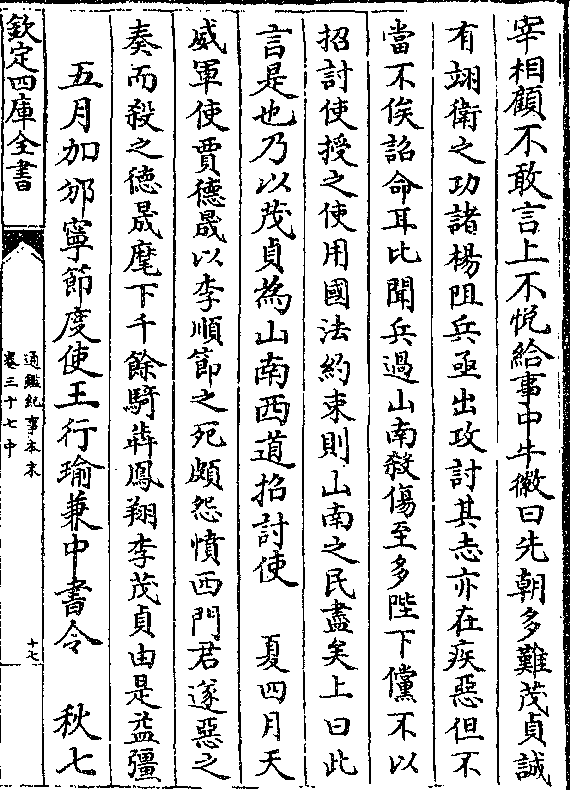 宰相顧不敢言上不悅給事中牛徽曰先朝多難茂貞誠
有翊衛之功諸楊阻兵亟出攻討其志亦在疾惡但不
當不俟詔命耳比聞兵過山南殺傷至多陛下儻不以
招討使授之使用國法約束則山南之民盡矣上曰此
言是也乃以茂貞為山南西道招討使　夏四月天
威軍使賈德晟以李順節之死頗怨憤西門君遂惡之
奏而殺之德晟麾下千餘騎犇鳳翔李茂貞由是益彊
五月加邠寧節度使王行瑜兼中書令　秋七
欽定四庫全書
通鑑紀事本末
卷三十七中
十七